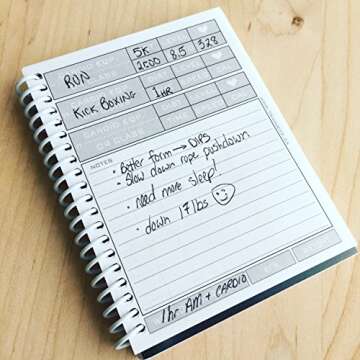 5K
RUN 2500 8.5 328
KICK BOXING 1HR
CARDIO EQP.
OR CLASS
NOTES
• Better form → DIPS
• Slow down rope pushdown
• need more sleep!
• down 17 lbs
1hr AM + CARDIO